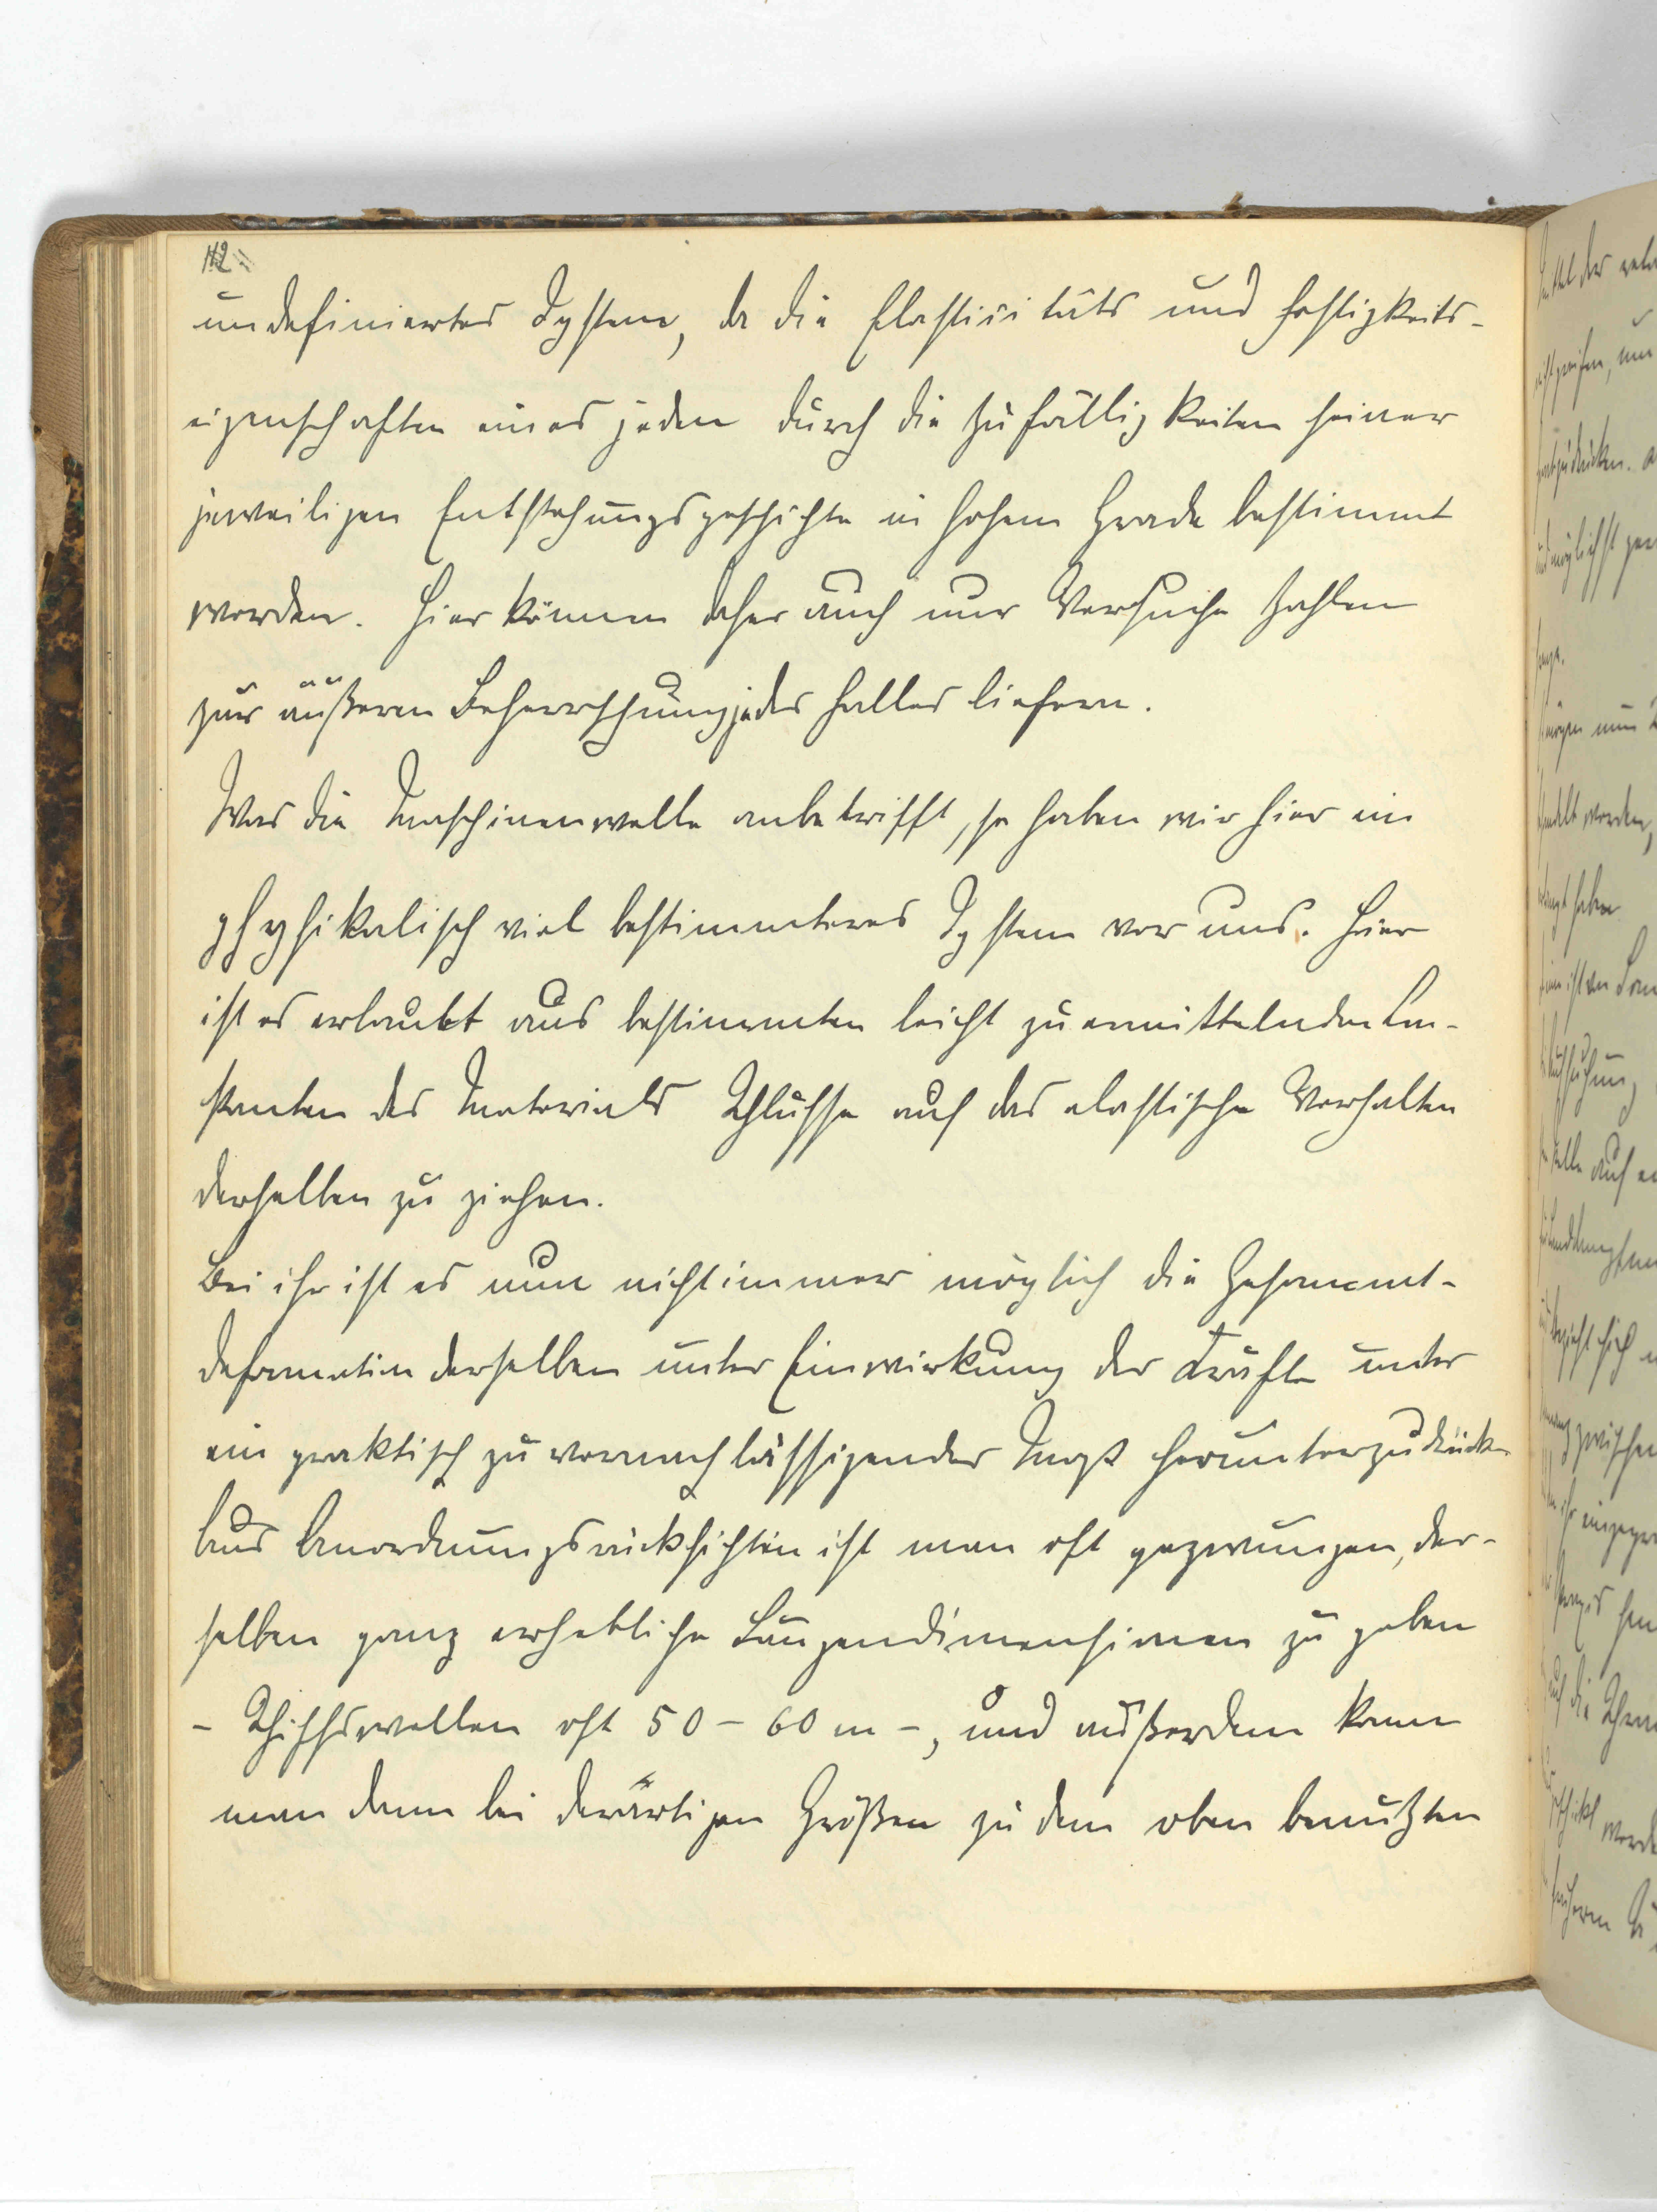 112
undefiniertes System, da die Elasticitäts und Festigkeits-
eigenschaften eines jeden durch die Zufälligkeiten seiner
jeweiligen Entstehungsgeschichte in hohem Grade bestimmt
werden. Hier können daher auch nur Versuche Zahlen
zur äußeren Beherrschung jedes Falles liefern.
Was die Maschinenwelle anbetrifft, so haben wir hier ein
physikalisch viel bestimmteres System vor uns. Hier
ist es erlaubt aus bestimmten leicht zu ermittelnden Con-
stanten des Materials Schlüsse auf das elastische Verhalten
derselben zu ziehen.
Bei ihr ist es nun nicht immer möglich die Gesammt-
deformation derselben unter Einwirkung der Kräfte unter
ein praktisch zu vernachlässigendes Maß herunterzudrücken
Aus Anordnungsrücksichten ist man oft gezwungen, der-
selben ganz erhebliche Längendimensionen zu geben
- Schiffswellen oft 50 - 60 m -, und außerdem kann
man dann bei derartigen Größen zu dem oben benutzten